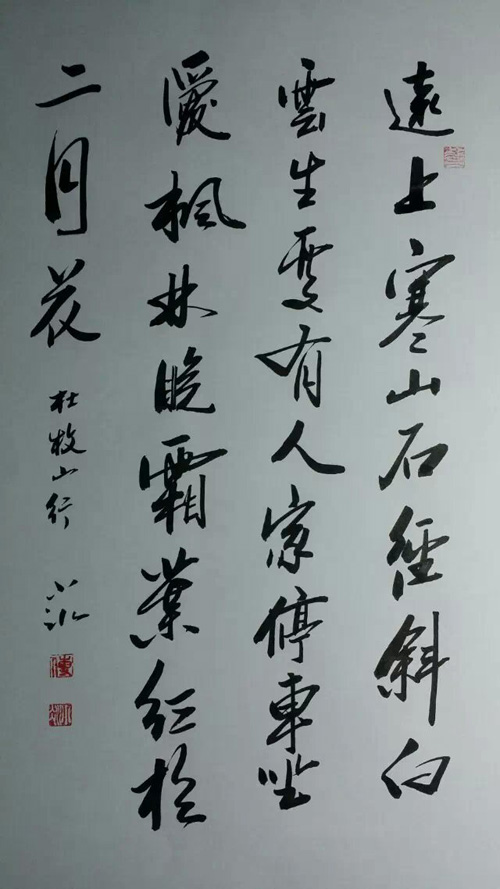 遠上寒山石徑斜白
雲生處有人家停車坐
愛楓林晚霜葉紅於
二月花
杜牧山行